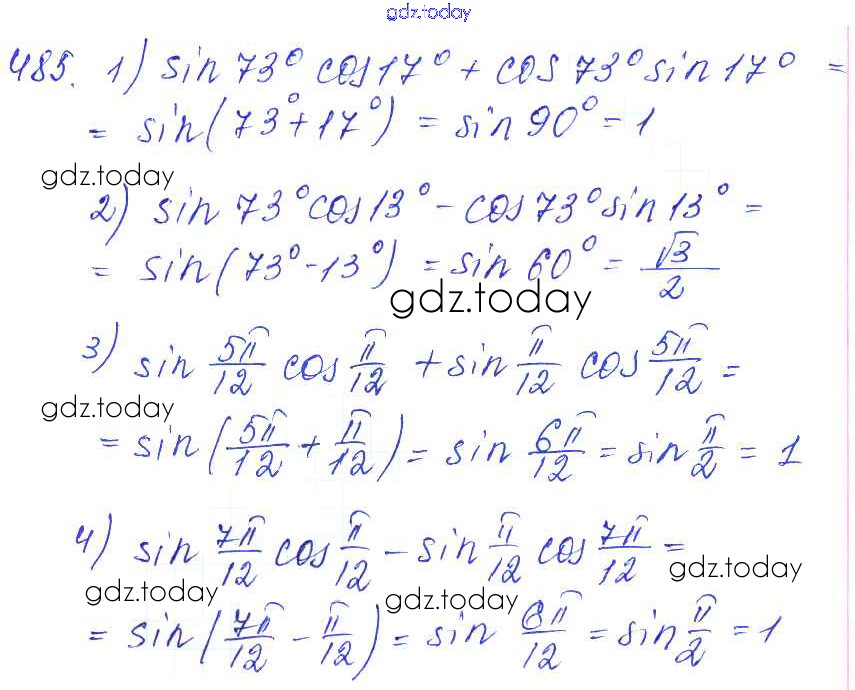 gdz.today
485. 1) sin 73° cos 17° + cos 73° sin 17° =
= sin(73° + 17°) = sin 90° = 1
gdz.today
2) sin 73° cos 13° - cos 73° sin 13° =
= sin(73° - 13°) = sin 60° = √3/2
gdz.today
3) sin 5π/12 cos π/12 + sin π/12 cos 5π/12 =
gdz.today
= sin(5π/12 + π/12) = sin 6π/12 = sin π/2 = 1
4) sin 7π/12 cos π/12 - sin π/12 cos 7π/12 =
gdz.today
gdz.today
gdz.today
= sin(7π/12 - π/12) = sin 6π/12 = sin π/2 = 1